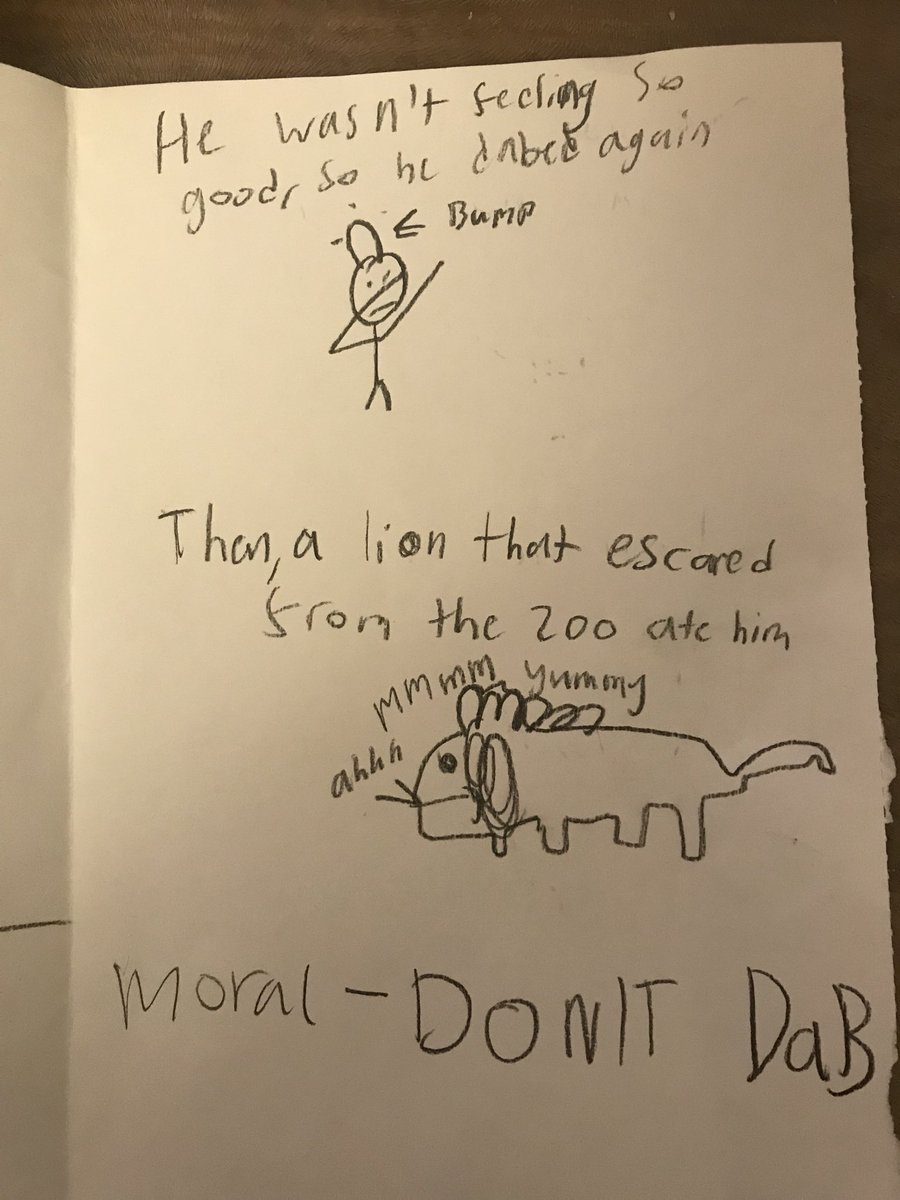 He wasn't feeling so
good, so he dabed again
← Bump
Then, a lion that escaped
from the zoo ate him
mmmm yummy
ahhh
Moral - DON'T DaB